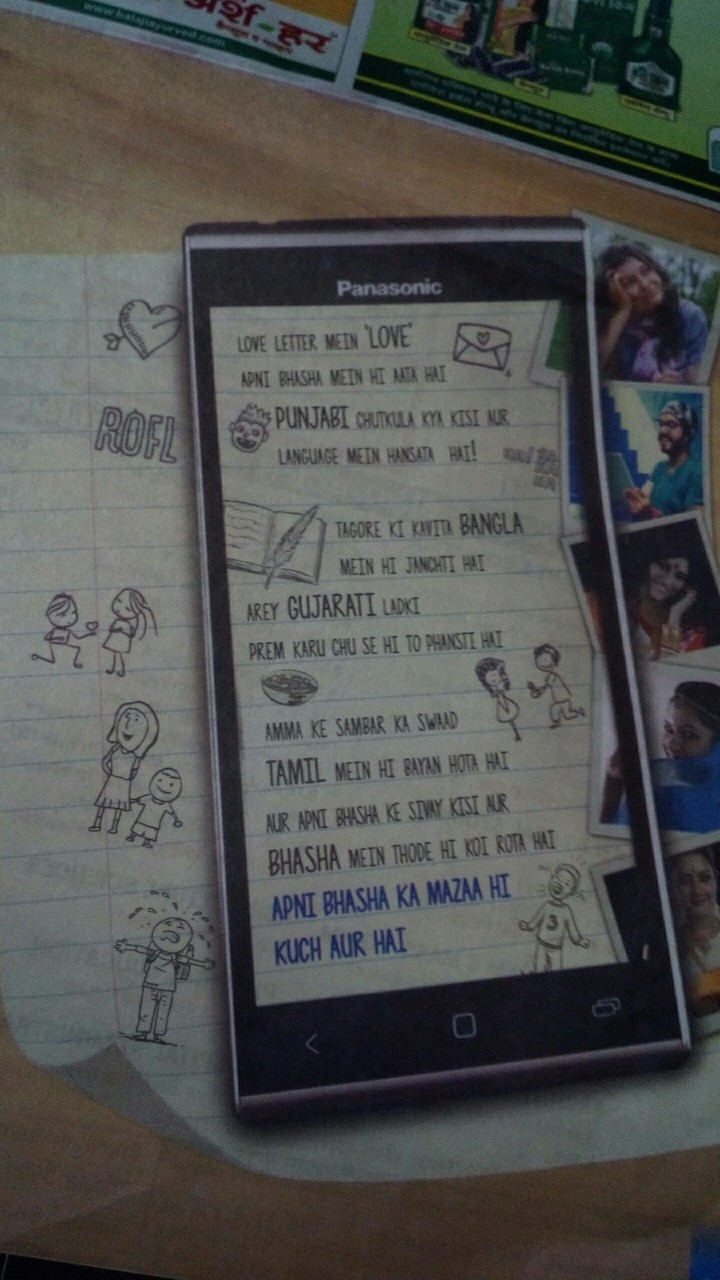 अर्श-हर
www.balajiayurved.com
Panasonic
LOVE LETTER MEIN 'LOVE'
APNI BHASHA MEIN HI AATA HAI
ROFL
PUNJABI CHUTKULA KYA KISI AUR
LANGUAGE MEIN HANSATA HAI!
TAGORE KI KAVITA BANGLA
MEIN HI JANCHTI HAI
AREY GUJARATI LADKI
PREM KARU CHU SE HI TO PHANSTI HAI
AMMA KE SAMBAR KA SWAAD
TAMIL MEIN HI BAYAN HOTA HAI
AUR APNI BHASHA KE SIVAY KISI AUR
BHASHA MEIN THODE HI KOI ROTA HAI
APNI BHASHA KA MAZAA HI
KUCH AUR HAI
3